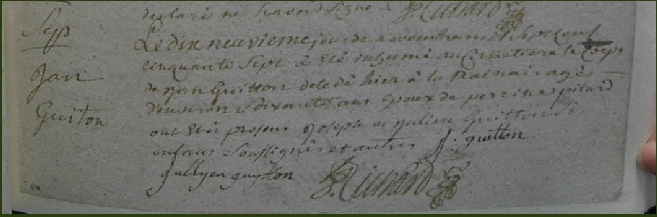 declaré ne savoir signé
Sep
Jan
Guiton
Le dix neuvieme jour de novembre mil sept cent
cinquante sept a été inhumé au cimetiere le corps
de Jan Guitton decedé hier à la agés
d'environ soixante ans epoux de perrine pilard
ont étés presens Joseph et Julien Guittons
enfans soussignés et autres J: guitton
Jullyen guytton